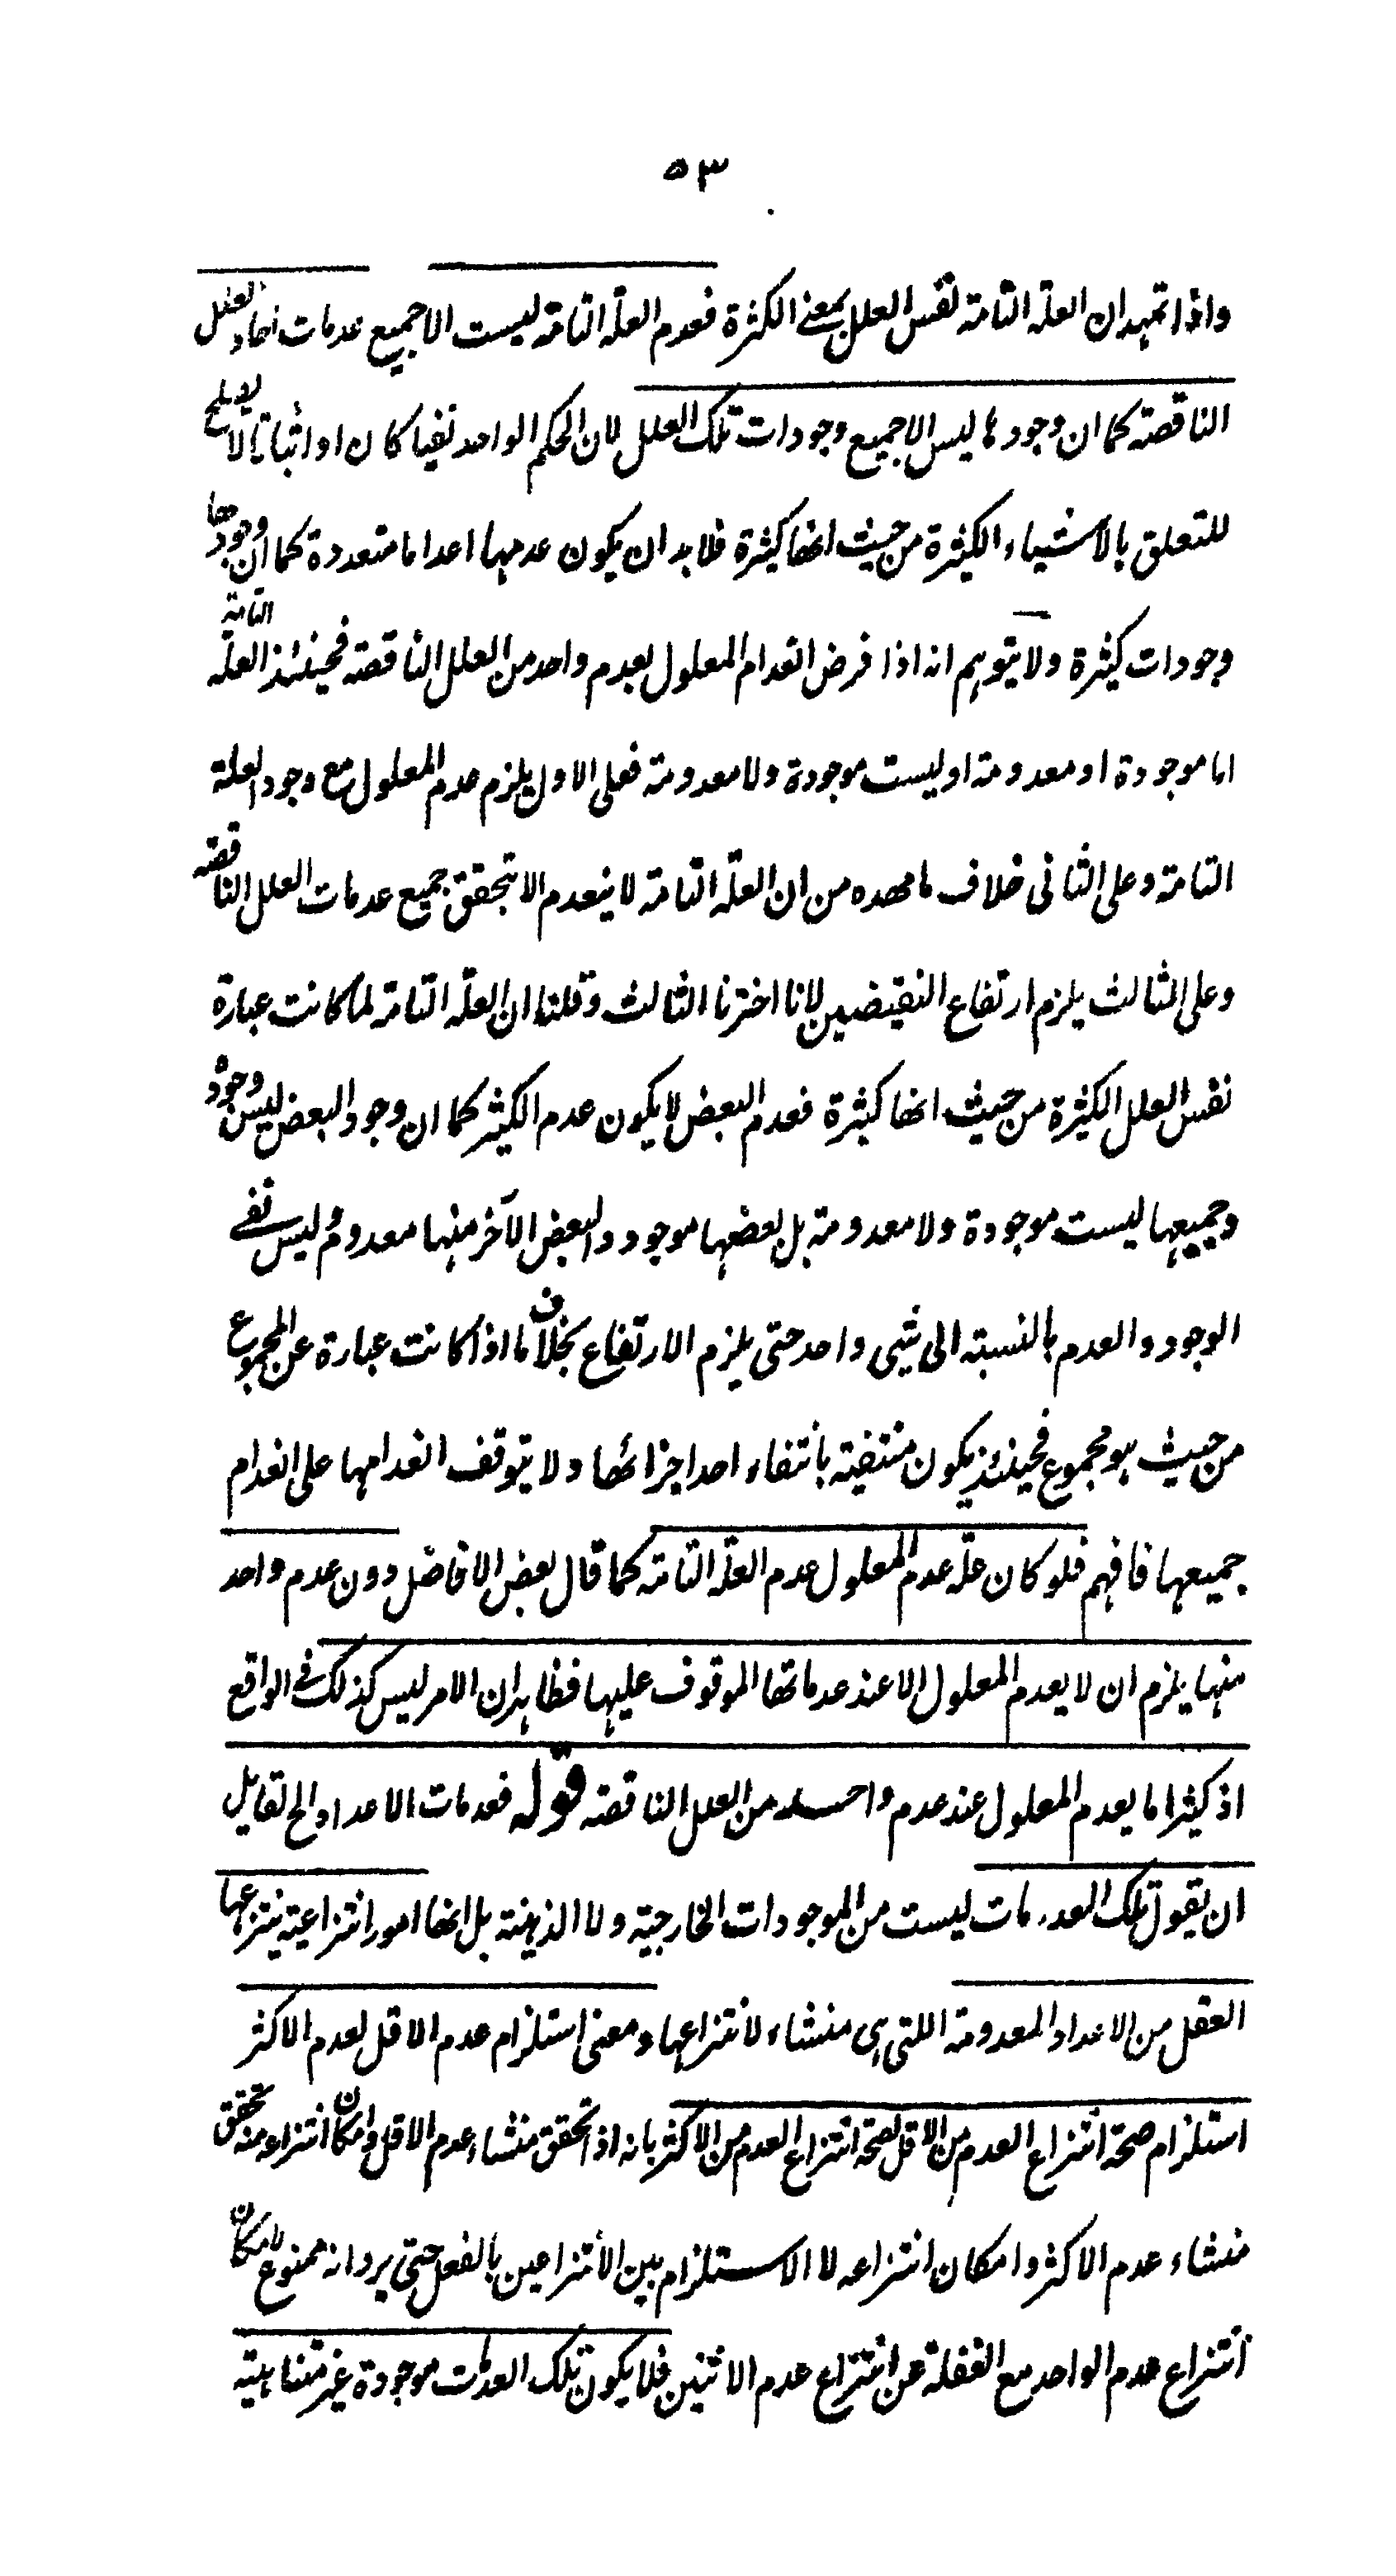 ٥٣
واذا تمهد ان العلة التامة نفس العلل بمعنى الكثرة فعدم العلة التامة ليست الا جميع عدمات آحاد العلل
الناقصة كما ان وجودها ليس الا جميع وجودات تلك العلل لان الحكم الواحد نفيا كان او اثباتا لا يصلح
للتعلق بالاشياء الكثيرة من حيث انها كثيرة فلا بد ان يكون عدمها اعداما متعددة كما ان وجودها
وجودات كثيرة ولا يتوهم انه اذا فرض انعدام المعلول بعدم واحد من العلل الناقصة فحينئذ العلة التامة
اما موجودة او معدومة او ليست موجودة ولا معدومة فعلى الاول يلزم عدم المعلول مع وجود العلة
التامة وعلى الثاني خلاف ما مهده من ان العلة التامة لا ينعدم الا بتحقق جميع عدمات العلل الناقصة
وعلى الثالث يلزم ارتفاع النقيضين لانا اخترنا الثالث وقلنا ان العلة التامة لما كانت عبارة
نفس العلل الكثيرة من حيث انها كثيرة فعدم البعض لا يكون عدم الكثير كما ان وجود البعض ليس وجوده
وجميعها ليست موجودة ولا معدومة بل بعضها موجود والبعض الآخر منها معدوم وليس نفي
الوجود والعدم بالنسبة الى شيى واحد حتى يلزم الارتفاع بخلاف ما اذا كانت عبارة عن المجموع
من حيث هو مجموع فحينئذ يكون منتفية بانتفاء احد اجزائها ولا يتوقف انعدامها على انعدام
جميعها فافهم فلو كان علة عدم المعلول عدم العلة التامة كما قال بعض الافاضل دون عدم واحد
منها يلزم ان لا يعدم المعلول الا عند عدماتها الموقوف عليها فظاهر ان الامر ليس كذلك في الواقع
اذ كثيرا ما يعدم المعلول عند عدم واحد من العلل الناقصة قوله فعدمات الاعداد الخ لقايل
ان يقول تلك العدمات ليست من الموجودات الخارجية ولا الذهنية بل انها امور انتزاعية ينتزعها
العقل من الاعداد المعدومة اللتى هى منشاء لانتزاعها ومعنى استلزام عدم الاقل لعدم الاكثر
استلزام صحة انتزاع العدم من الاقل لصحة انتزاع العدم من الاكثر بانه اذا تحقق منشاء عدم الاقل وامكان انتزاعه منه تحقق
منشاء عدم الاكثر وامكان انتزاعه لا الاستلزام بين الانتزاعين بالفعل حتى يرد انه ممنوع لامكان
انتزاع عدم الواحد مع الغفلة عن انتزاع عدم الاثنين فلا يكون تلك العدمات موجودة غير متناهية